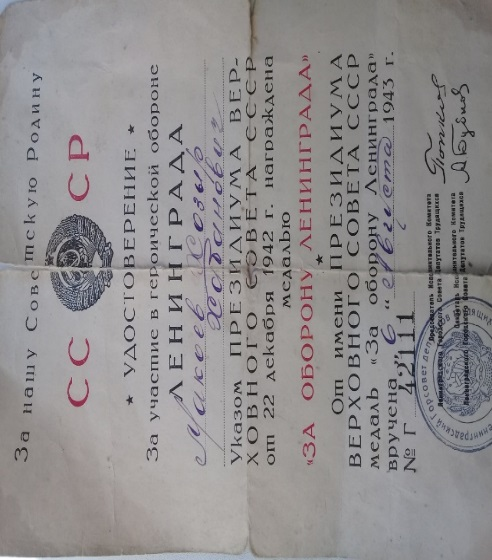 За нашу Советскую Родину
СС СР
★ УДОСТОВЕРЕНИЕ ★
За участие в героической обороне
ЛЕНИНГРАДА
Макоев Хозир
Указом ПРЕЗИДИУМА ВЕР-
ХОВНОГО СОВЕТА СССР
от 22 декабря 1942 г. награждена
медалью
«ЗА ОБОРОНУ ЛЕНИНГРАДА»
★
От имени ПРЕЗИДИУМА
ВЕРХОВНОГО СОВЕТА СССР
медаль «За оборону Ленинграда»
вручена „6“ Августа 1943 г.
№ Г 4211
Председатель Исполнительного Комитета
Ленинградского Городского Совета Депутатов Трудящихся
Попков
Секретарь Исполнительного Комитета
Ленинградского Городского Совета Депутатов Трудящихся
А Бубнов